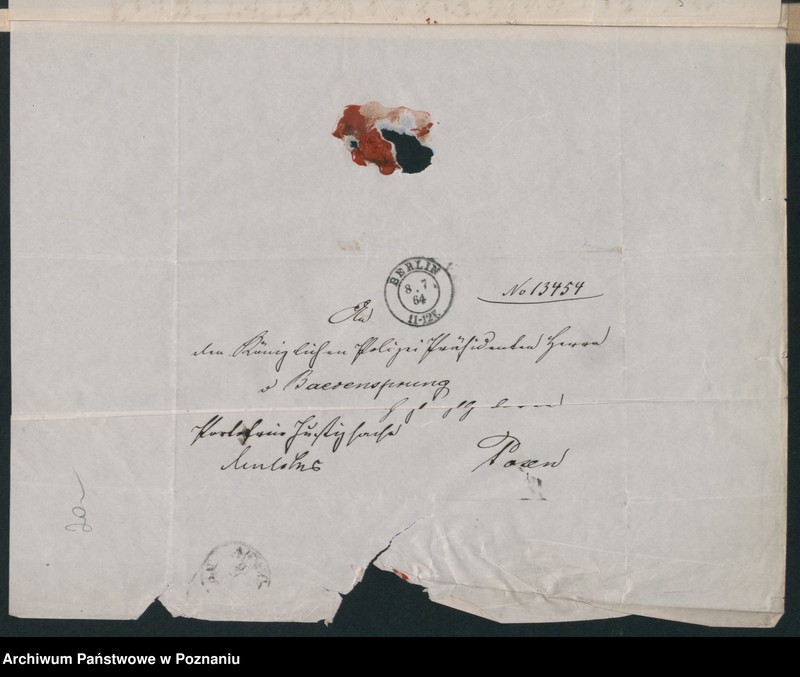 BERLIN
8.7
64
11-12V.
No 13454
An
den Königlichen Polizei Präsidenten Herrn
v Baerensprung
Portofreie Justizsache
Posen
20
Archiwum Państwowe w Poznaniu